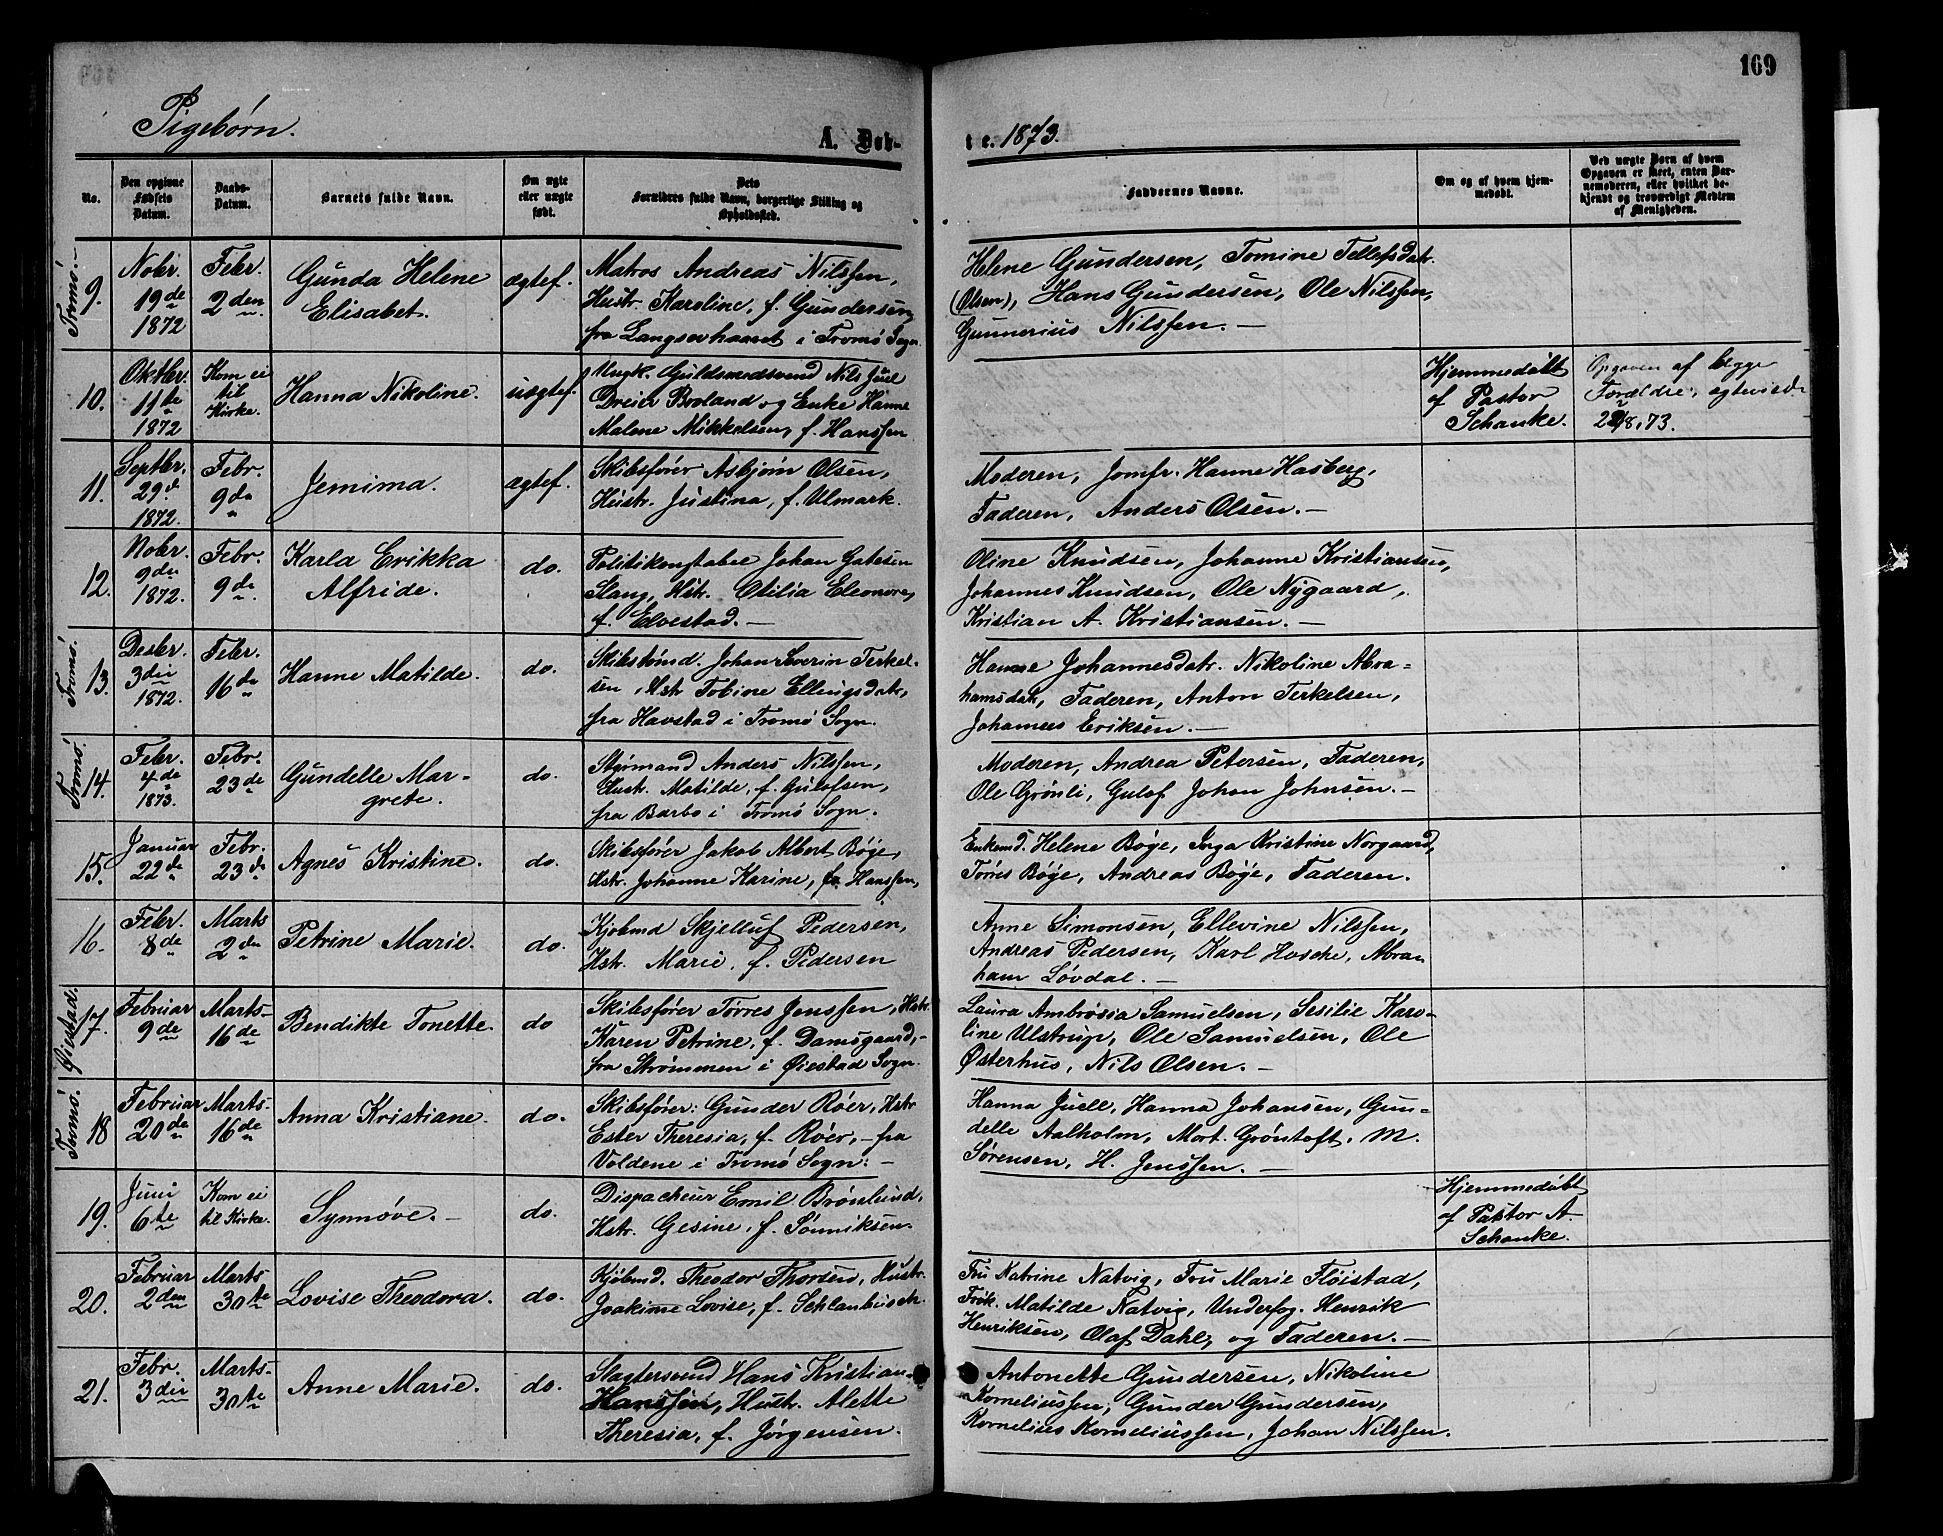 169
Pigebørn.
A. Døb-
te. 1873.
No.
Den opgivne
Fødsels
Datum.
Daabs-
Datum.
Barnets fulde Navn.
Om ægte
eller uægte
født.
Dets
Forældres fulde Navn, borgerlige Stilling og
Opholdssted.
Faddernes Navne.
Om og af hvem hjem-
medøbt.
Ved uægte Børn af hvem
Opgaven er skeet, enten Bar-
nemoderen, eller hvilket be-
kjendt og troværdigt Medlem
af Menigheden.
Tromø.
9.
Nobr.
19de
1872
Febr.
2den
Gunda Helene
Elisabet.
ægtef.
Matros Andreas Nilssen,
Hustr. Karoline, f. Gundersen,
fra Langsævhaaret i Tromø Sogn.
Helene Gundersen, Tomine Tellefsdatr.
(Olsen), Hans Gundersen, Ole Nilssen,
Gunnerius Nilssen. —
10.
Oktbr.
11te
1872
Kom ei
til
Kirke.
Hanna Nikoline.
uægtef.
Ungk. Guldsmedsvend Nils Juel
Dreier Broland og Enke Hanne
Malene Mikkelsen, f. Hanssen
Hjemmedøbt
af Pastor
Schanke.
Opgaven af begge
Forældre, egteviede
2/8.73.
11.
Septbr.
29d
1872.
Febr.
9de
Jemima.
ægtef.
Skibsfører Asbjørn Olsen,
Hustr. Justina, f. Ulmark.
Moderen, Jomfr. Hanne Hasberg,
Faderen, Anders Olsen. —
12.
Nobr.
9de
1872.
Febr.
9de
Karla Erikka
Alfride.
do.
Politikonstabel Johan Gabesen
Slang, Hstr. Otilia Eleonore,
f. Elvestad. —
Oline Knudsen, Johanne Kristiansen,
Johannes Knudsen, Ole Nygaard,
Kristian A. Kristiansen. —
Tromø.
13.
Desbr.
3die
1872.
Febr.
16de
Hanne Matilde.
do.
Skibstømd. Johan Severin Terkel-
sen, Hstr Tobine Ellingsdatr,
fra Havstad i Tromø Sogn.
Hanne Johannesdatr. Nikoline Abra-
hamsdatr, Faderen, Anton Terkelsen,
Johannes Eriksen. —
Tromø.
14.
Febr.
4de
1873.
Febr.
23de
Gundelle Mar-
grete.
do.
Styrmand Anders Nilssen,
Hustr. Matilde, f. Gulofsen,
fra Barbo i Tromø Sogn.
Moderen, Andrea Petersen, Faderen,
Ole Grønli, Gulof Johan Johnsen. —
15.
Januar
22de
Febr.
23de
Agnes Kristine.
do.
Skibsfører Jakob Albert Bøge,
Hstr. Johanne Karine, f. Hanssen,
Enkemd. Helene Bøge, Inga Kristine Norgaard,
Tørres Bøge, Andreas Bøge, Faderen.
16.
Febr.
8de
Marts
2den
Petrine Marie.
do.
Kjøbmd Skjelluf Pedersen,
Hstr. Marie, f. Pedersen
Anne Simonsen, Ellevine Nilssen,
Andreas Pedersen, Karl Hosche, Abra
ham Løvdal. —
Øiestad.
17.
Februar
9de
Marts-
16de
Bendikte Tonette.
do
Skibsfører Tørres Jenssen, Hstr.
Karen Petrine, f. Damsgaard, -
fra Strømmen i Øiestad Sogn.
Laura Ambrosia Samuelsen, Sesilie Karo-
line Ulstrup, Ole Samuelsen, Ole
Østerhus, Nils Olsen. —
Tromø.
18
Februar
20de
Marts-
16de
Anna Kristiane.
do.
Skibsfører: Gunder Røer, Hstr
Ester Theresia, f. Røer, - fra
Voldene i Tromø Sogn: -
Hanna Juell, Hanna Johansen, Gun-
delle Aalholm, Mort. Grøntoft, M.
Sørensen, H. Jenssen. —
19.
Juni
6te
Kom ei
til Kirke.
Synnøve. -
do.
Dispacheur Emil Brønlund,
Hstr. Gesine, f. Sønniksen.
Hjemmedøbt
af Pastor A.
Schanke.
20.
Februar
2den
Marts
30te
Lovise Theodora.
do.
Kjøbmd. Theodor Thorsen, Hustr.
Joakime Lovise, f. Schlanbusch.
Fru Katrine Natvig, Fru Marie Fløistad,
Frøk. Matilde Natvig, Underfog. Henrik
Henriksen, Olaf Dahl, og Faderen. —
21.
Febr.
3die
Marts-
30te
Anne Marie.
do.
Slagtersvend Hans Kristian
Hanssen, Hustr. Alette
Theresia, f. Jørgensen.
Antonette Gundersen, Nikoline
Korneliussen, Gunder Gundersen,
Kornelius Korneliussen, Johan Nilssen.